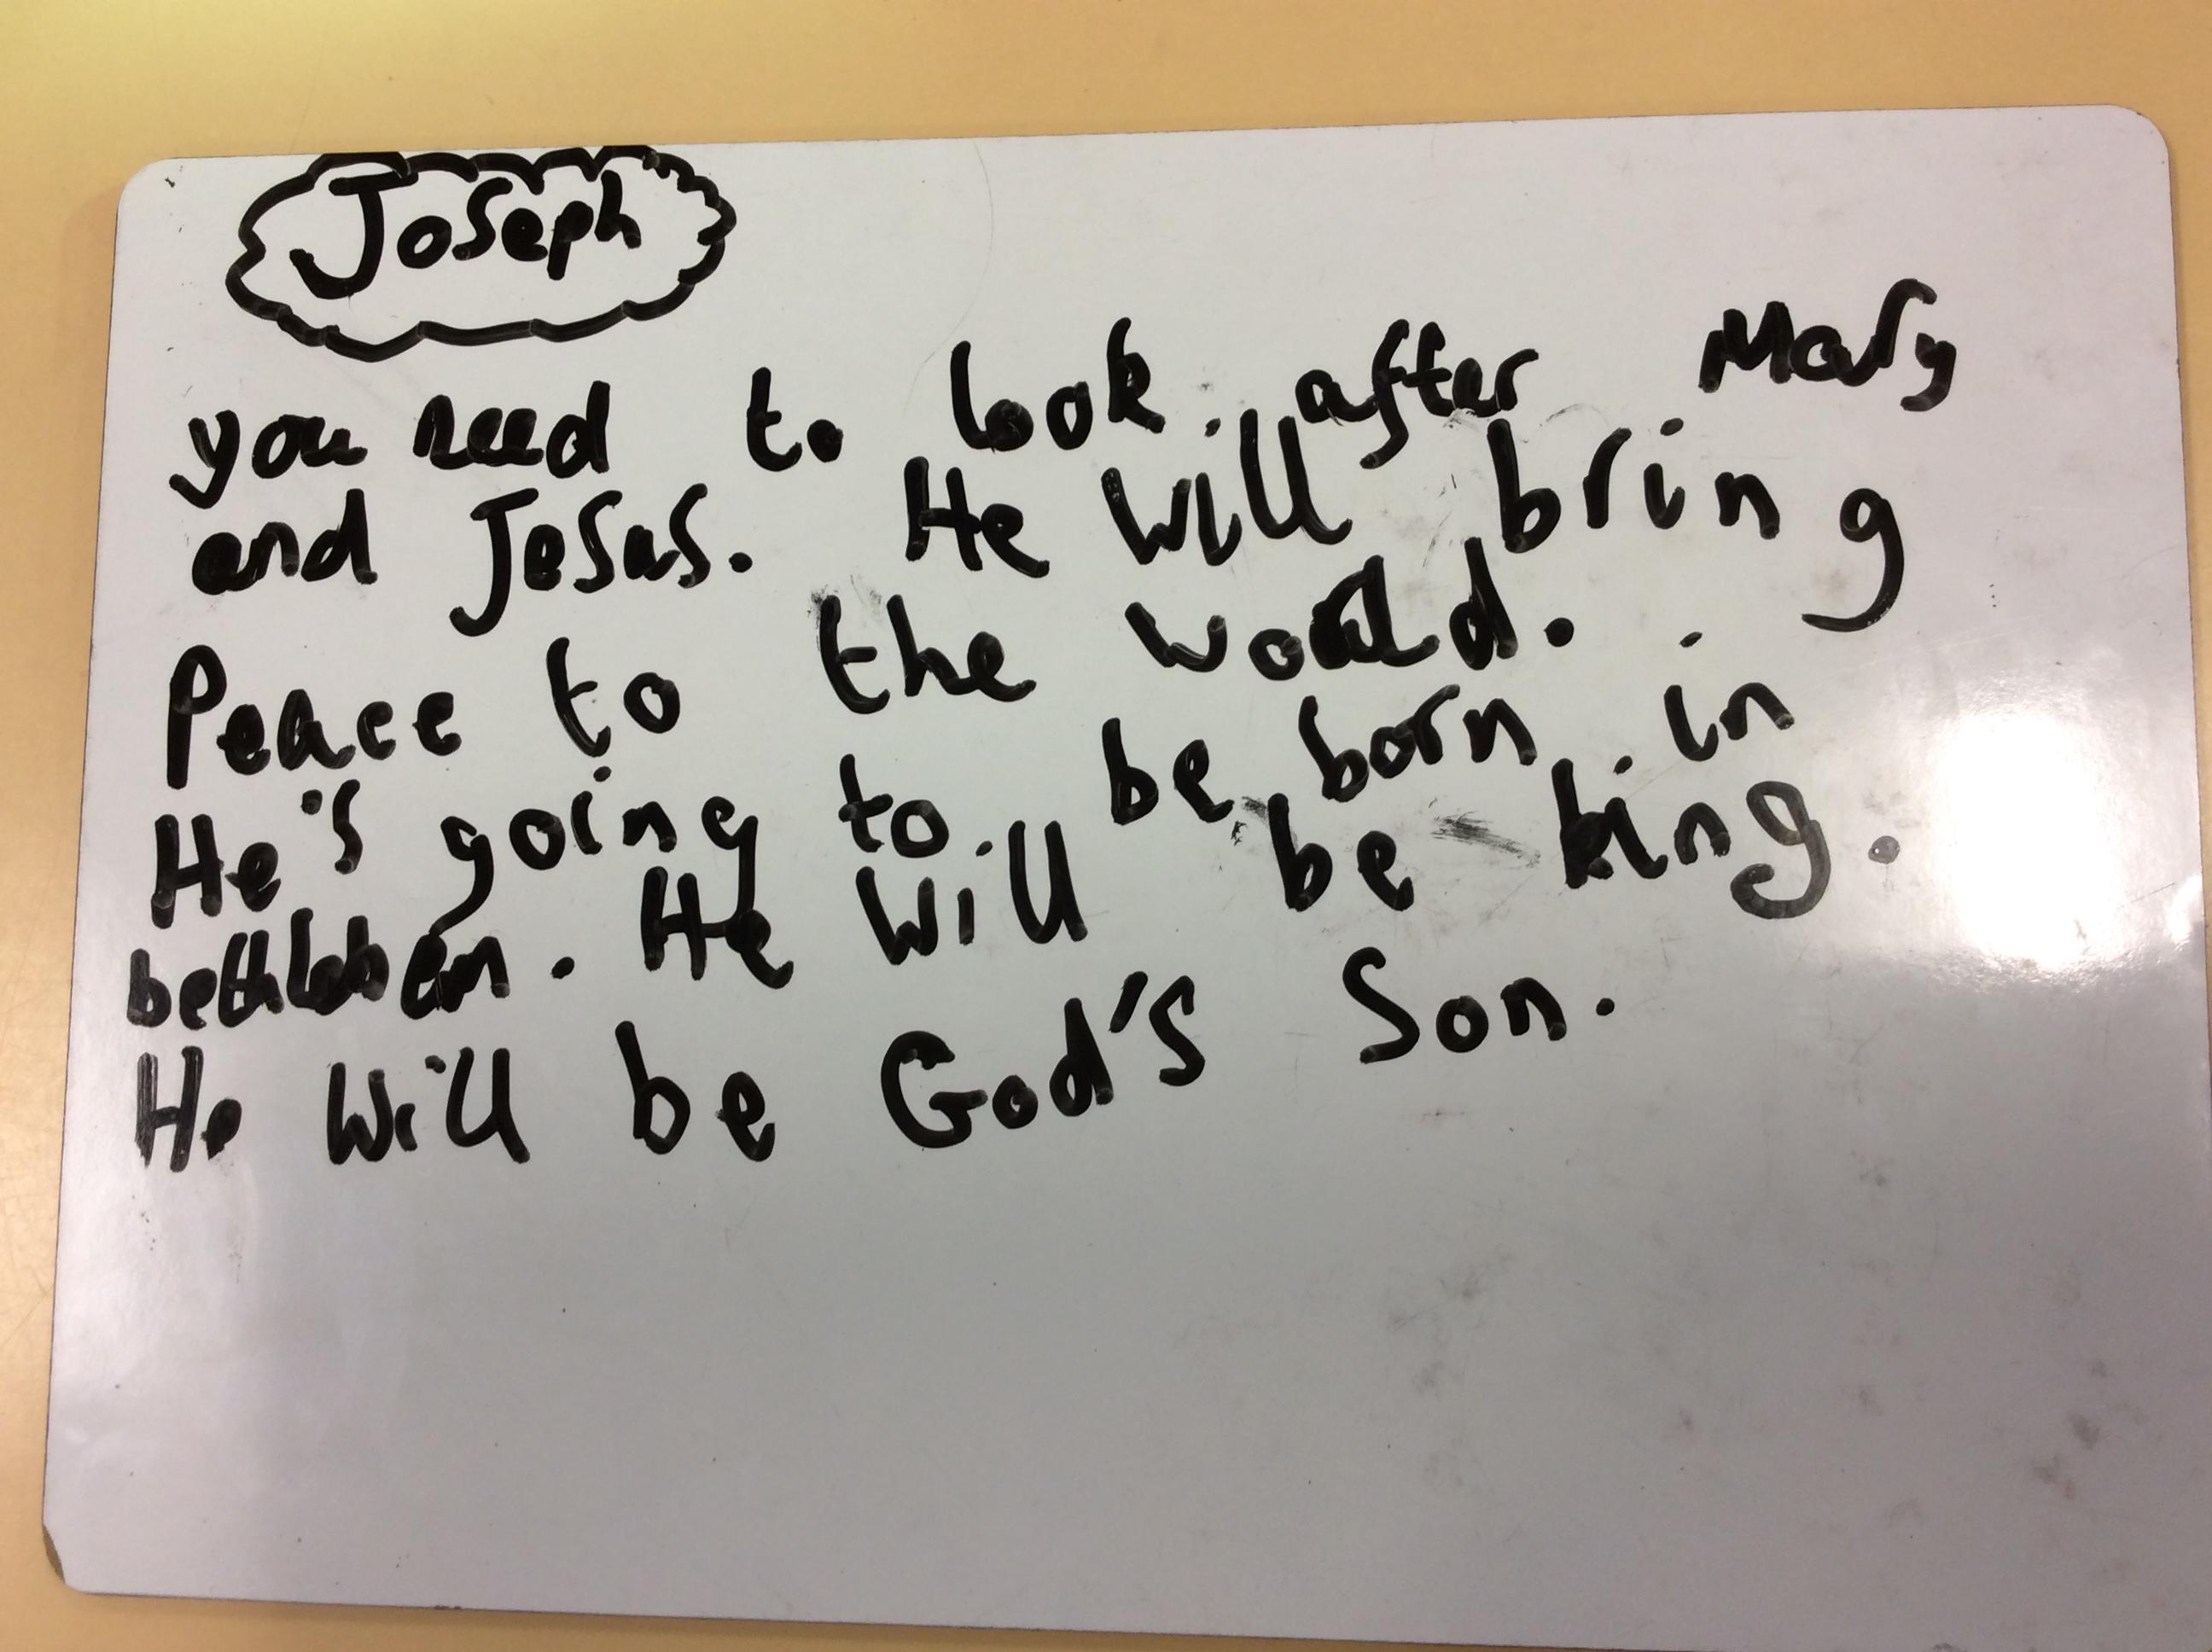 Joseph
you need to look after Mary
and Jesus. He will bring
Peace to the world.
He's going to be born in
bethlehem. He will be king.
He will be God's Son.